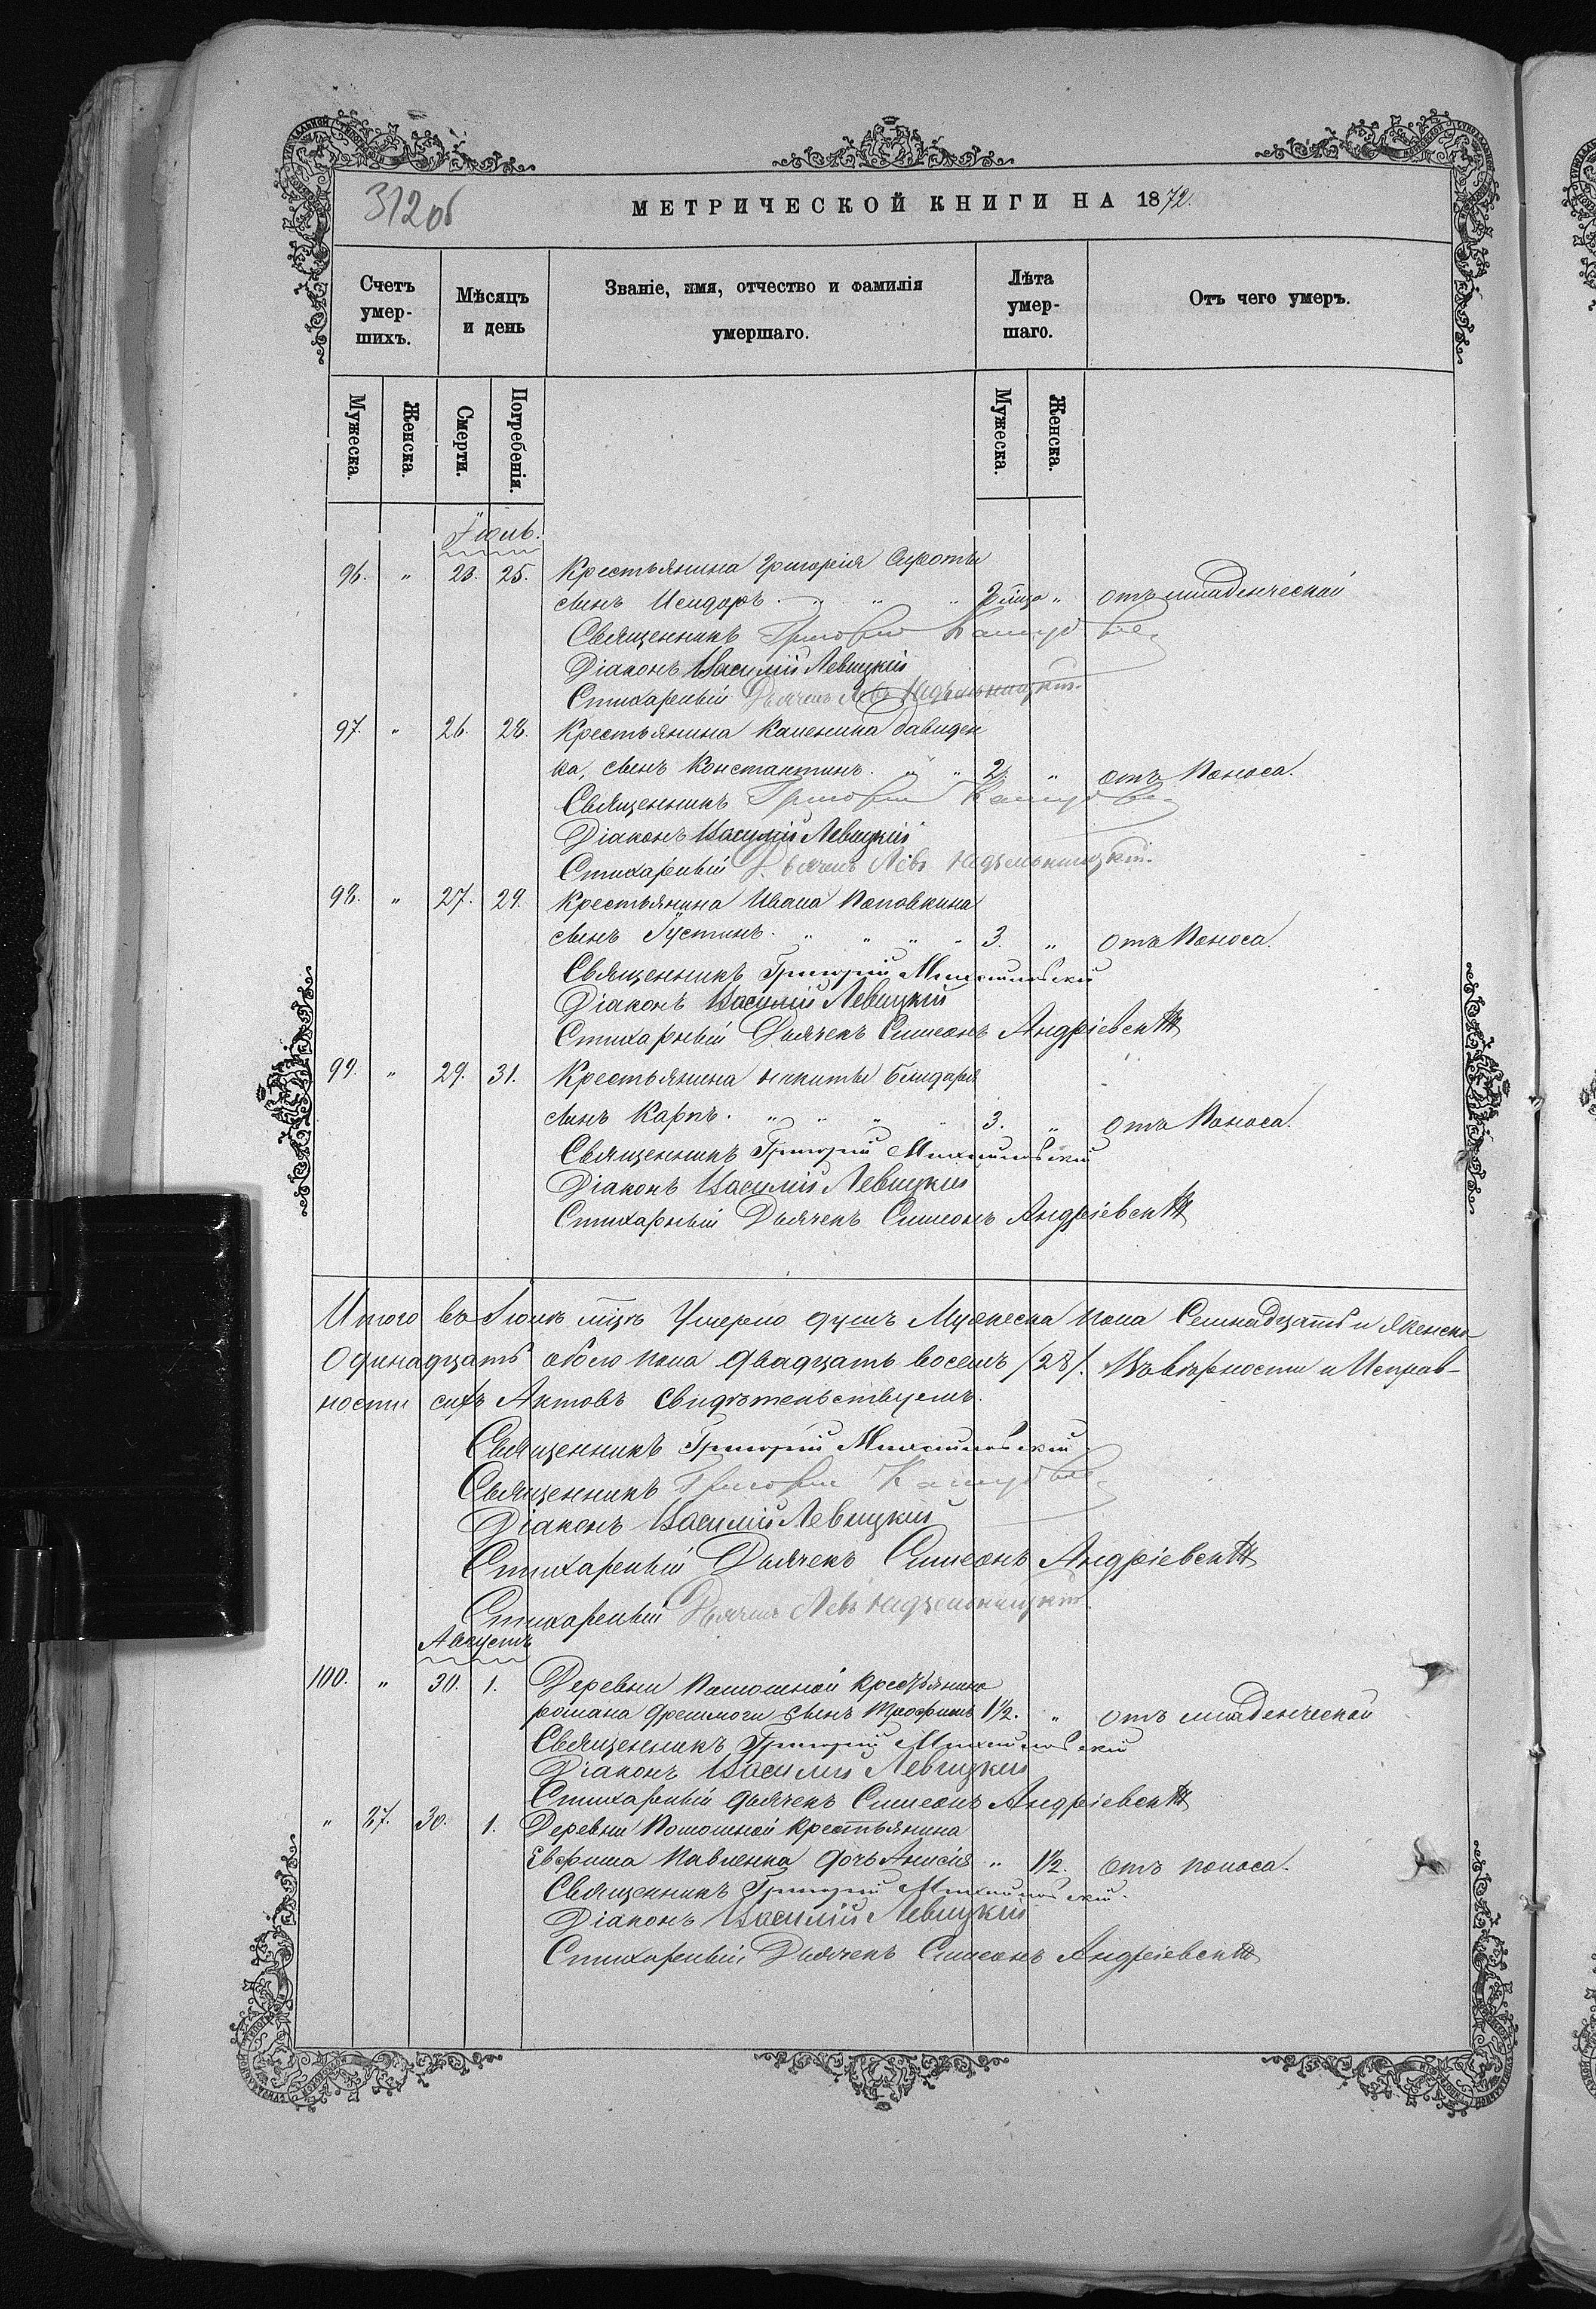 312 об
МЕТРИЧЕСКОЙ КНИГИ НА 1872.
Счетъ умер-шихъ.
Мѣсяцъ и день
Званіе, имя, отчество и фамилія умершаго.
Лѣта умер-шаго.
Отъ чего умеръ.
Мужеска. Женска. Смерти. Погребенія. Мужеска. Женска.
Іюль.
96. " 23. 25. Крестьянина Григорія Сироты
сынъ Исидоръ. " " " " отъ младенческой
Священникъ Григорій
Діаконъ Василій Левицкій
Стихарный Дьячекъ Левъ
97. " 26. 28. Крестьянина Каленика Давиден
ка, сынъ Константинъ. " " 2. " отъ Поноса.
Священникъ Григорій
Діаконъ Василій Левицкій
Стихарный Дьячекъ Левъ
98. " 27. 29. Крестьянина Ивана Поповкина
сынъ Іустинъ. " " " " 3. " отъ Поноса.
Священникъ Григорій
Діаконъ Василій Левицкій
Стихарный Дьячекъ Симеонъ Андріевскій
99. " 29. 31. Крестьянина Никиты
сынъ Карпъ. " " " " 3. " отъ Поноса.
Священникъ Григорій
Діаконъ Василій Левицкій
Стихарный Дьячекъ Симеонъ Андріевскій
Итого въ Іюлѣ мцѣ Умерло душъ Мужеска пола Семнадцать и Женска
Одинадцать обоего пола двадцать восемъ /28/. Въ вѣрности и Исправ-
ности сихъ Актовъ свидѣтельствуемъ.
Священникъ Григорій
Священникъ Григорій
Діаконъ Василій Левицкій
Стихарный Дьячекъ Симеонъ Андріевскій
Стихарный Дьячекъ Левъ
Августъ
100. " 30. 1. Деревни Помошной Крестьянина
романа сынъ Трофимъ 1½. " отъ младенческой
Священникъ Григорій
Діаконъ Василій Левицкій
Стихарный дьячекъ Симеонъ Андріевскій
" 87. 30. 1. Деревни Помошной крестьянина
Евфима Павленка дочь Анисія " 1½. отъ поноса.
Священникъ Григорій
Діаконъ Василій Левицкій
Стихарный Дьячекъ Симеонъ Андріевскій